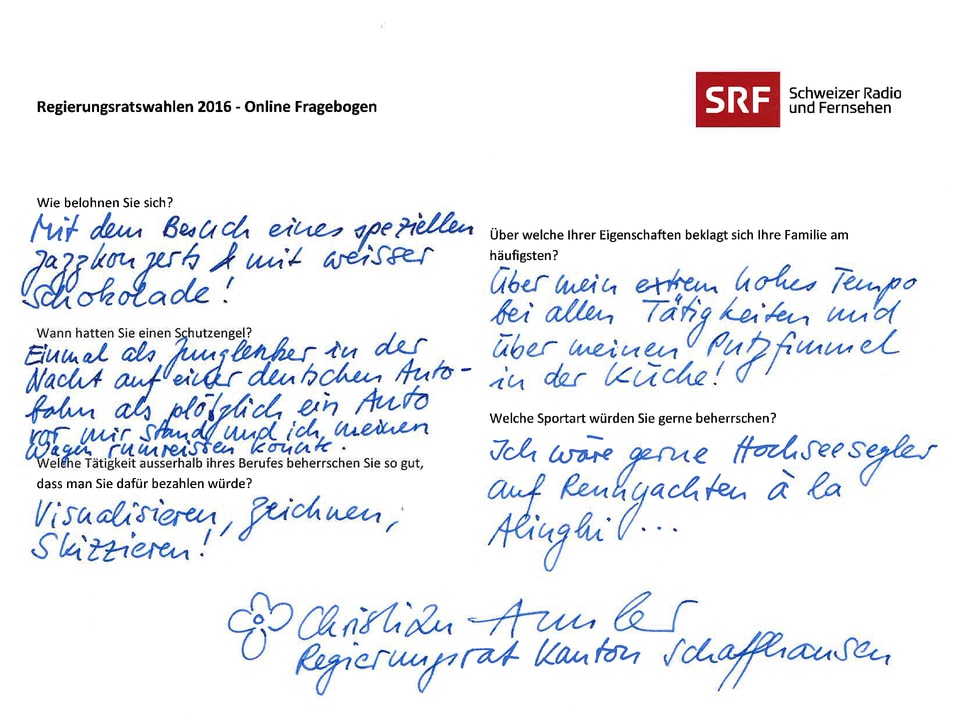 Regierungsratswahlen 2016 - Online Fragebogen
SRF Schweizer Radio
und Fernsehen
Wie belohnen Sie sich?
Mit dem Besuch eines speziellen
Jazzkonzerts & mit weisser
Schokolade!
Wann hatten Sie einen Schutzengel?
Einmal als Junglenker in der
Nacht auf einer deutschen Auto-
bahn als plötzlich ein Auto
vor mir stand und ich meinen
Wagen rumreissen konnte.
Welche Tätigkeit ausserhalb ihres Berufes beherrschen Sie so gut,
dass man Sie dafür bezahlen würde?
Visualisieren, Zeichnen,
Skizzieren!
Über welche Ihrer Eigenschaften beklagt sich Ihre Familie am
häufigsten?
Über mein extrem hohes Tempo
bei allen Tätigkeiten und
über meinen Putzfimmel
in der Küche!
Welche Sportart würden Sie gerne beherrschen?
Ich wäre gerne Hochseesegler
auf Rennyachten à la
Alinghi...
Christian Amsler
Regierungsrat Kanton Schaffhausen